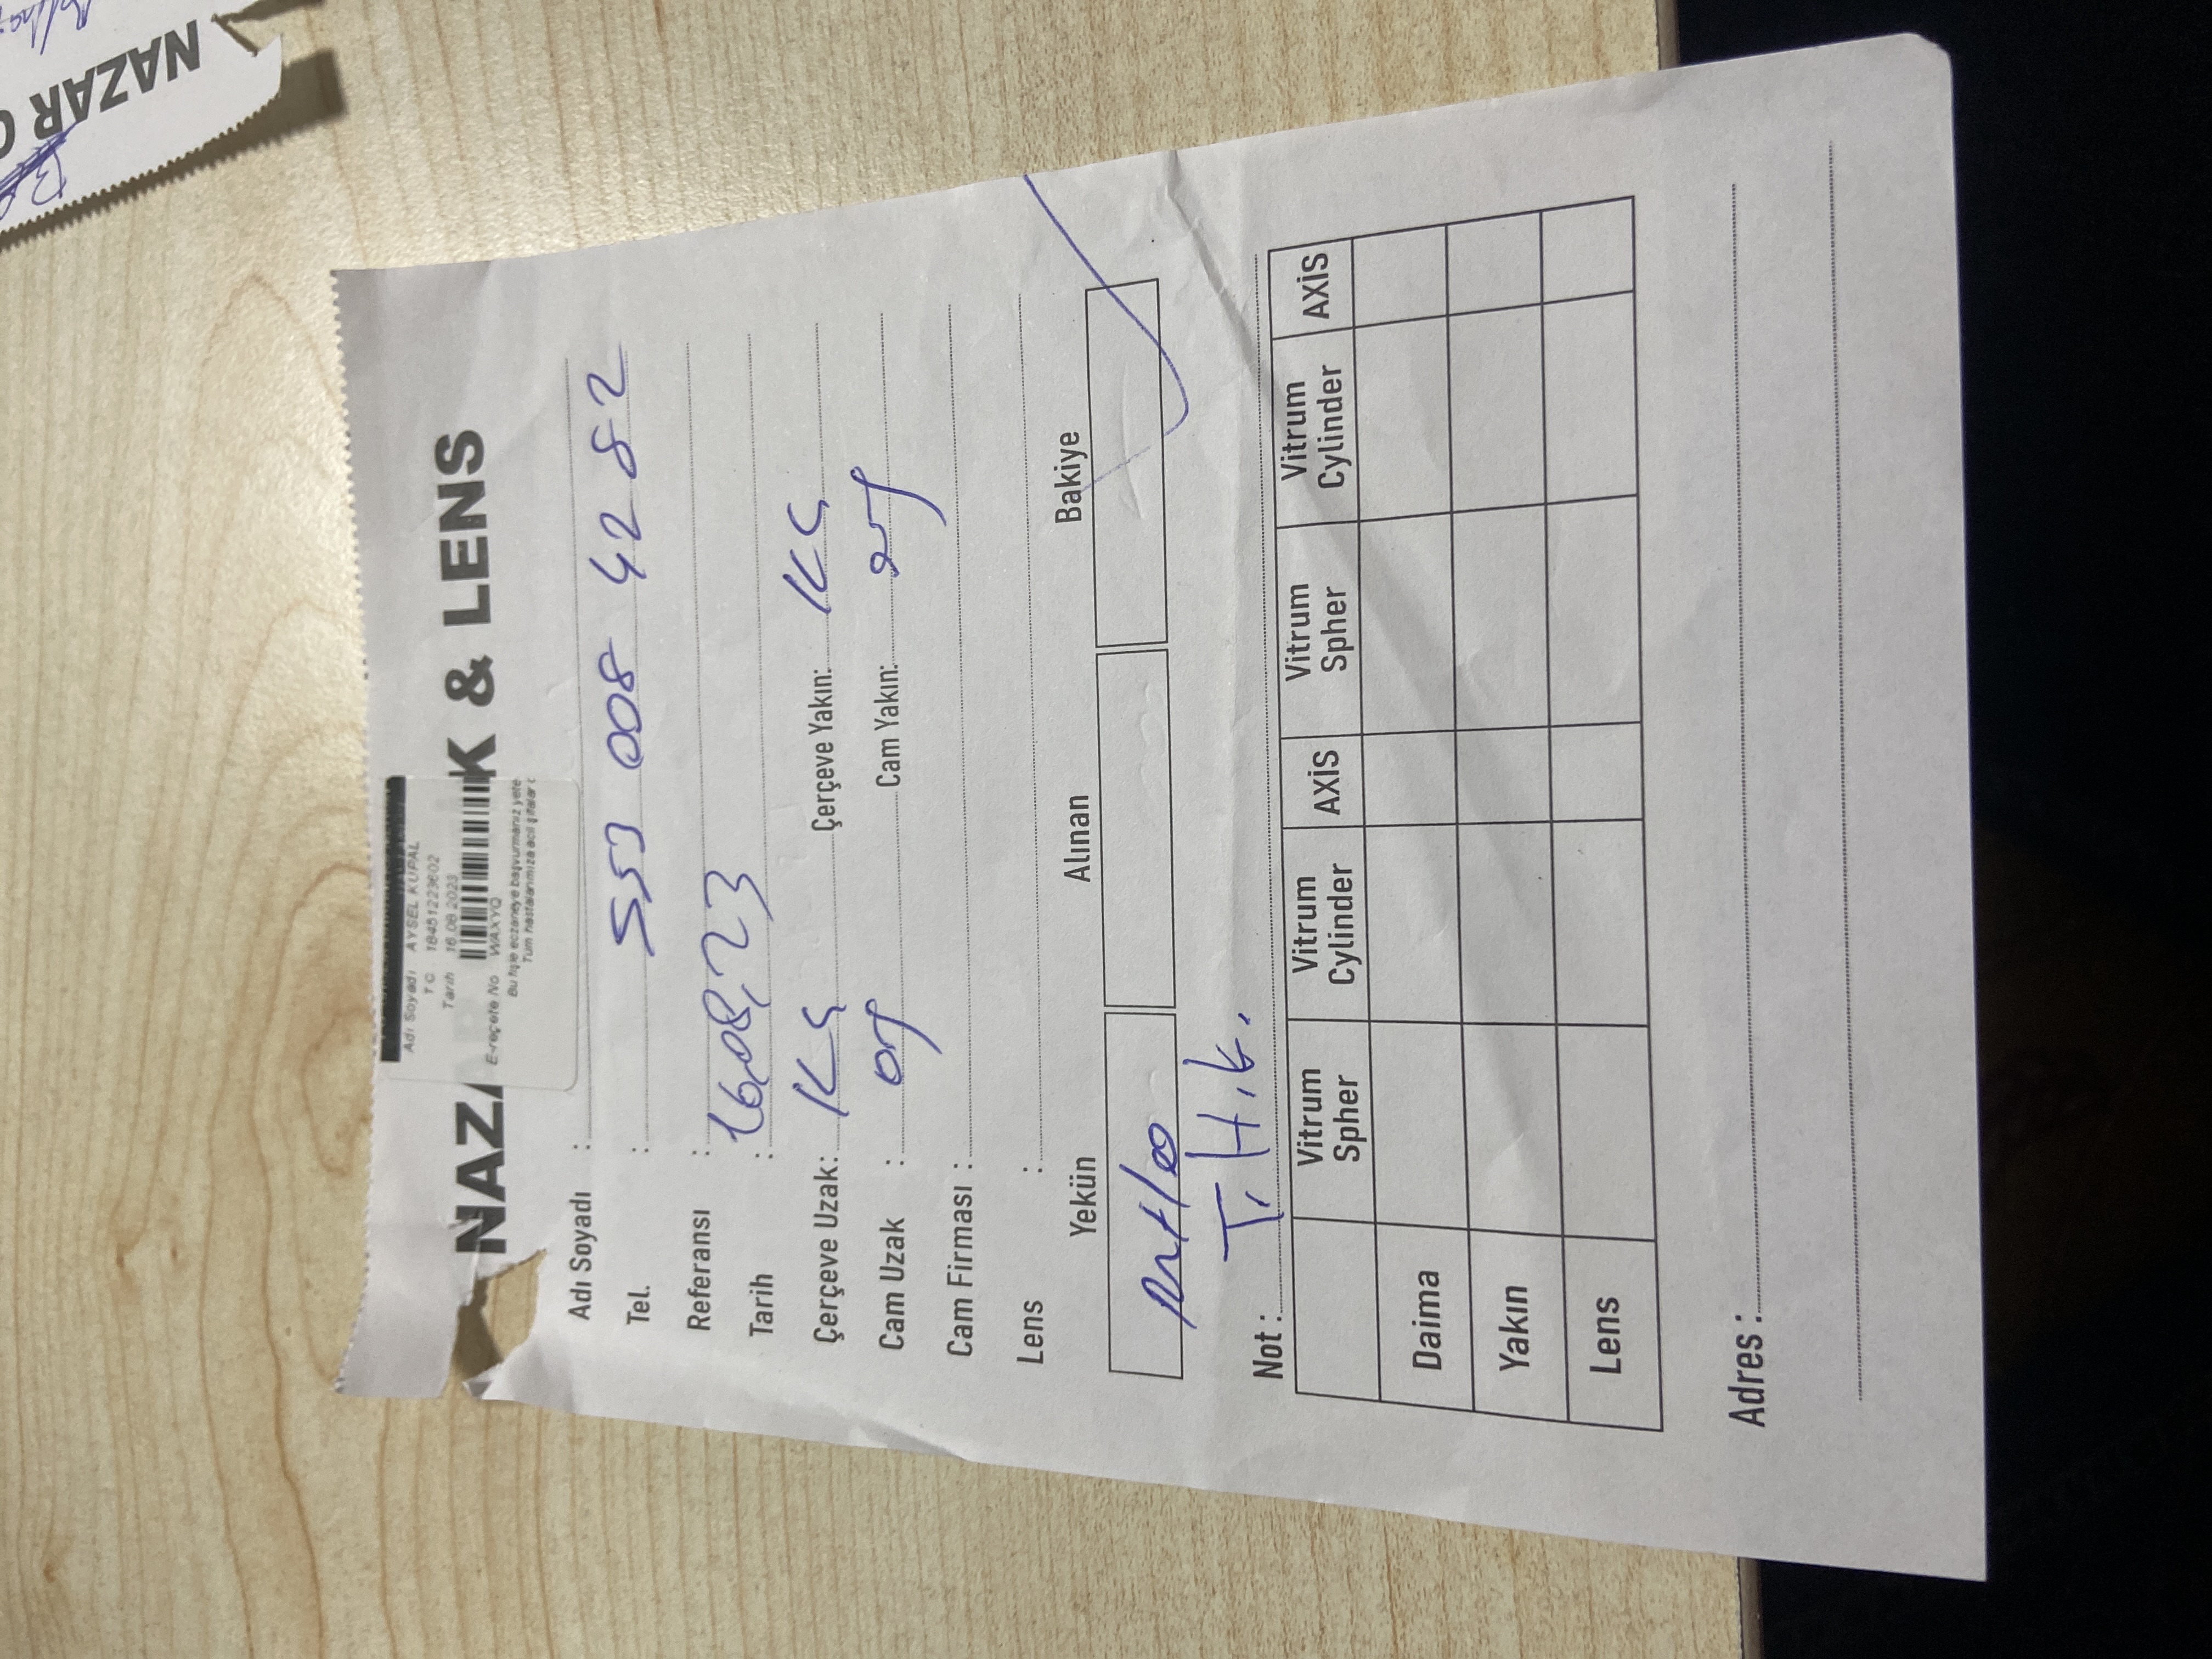 Adı Soyadı AYSEL KUPAL
TC 18451223602
Tarih 16.08.2023
E-reçete No WAXYQ
Bu fişle eczaneye başvurmanız yete
Tüm hastalarımıza acil şifalar d
NAZA K & LENS
Adı Soyadı :
Tel. : 553 008 42 82
Referansı :
Tarih : 16,08,23
Çerçeve Uzak: KÇ Çerçeve Yakın: KÇ
Cam Uzak : org Cam Yakın: org
Cam Firması :
Lens :
Yekün Alınan Bakiye
Not : T.H.k.
Vitrum Spher Vitrum Cylinder AXİS Vitrum Spher Vitrum Cylinder AXİS
Daima
Yakın
Lens
Adres :
NAZAR O